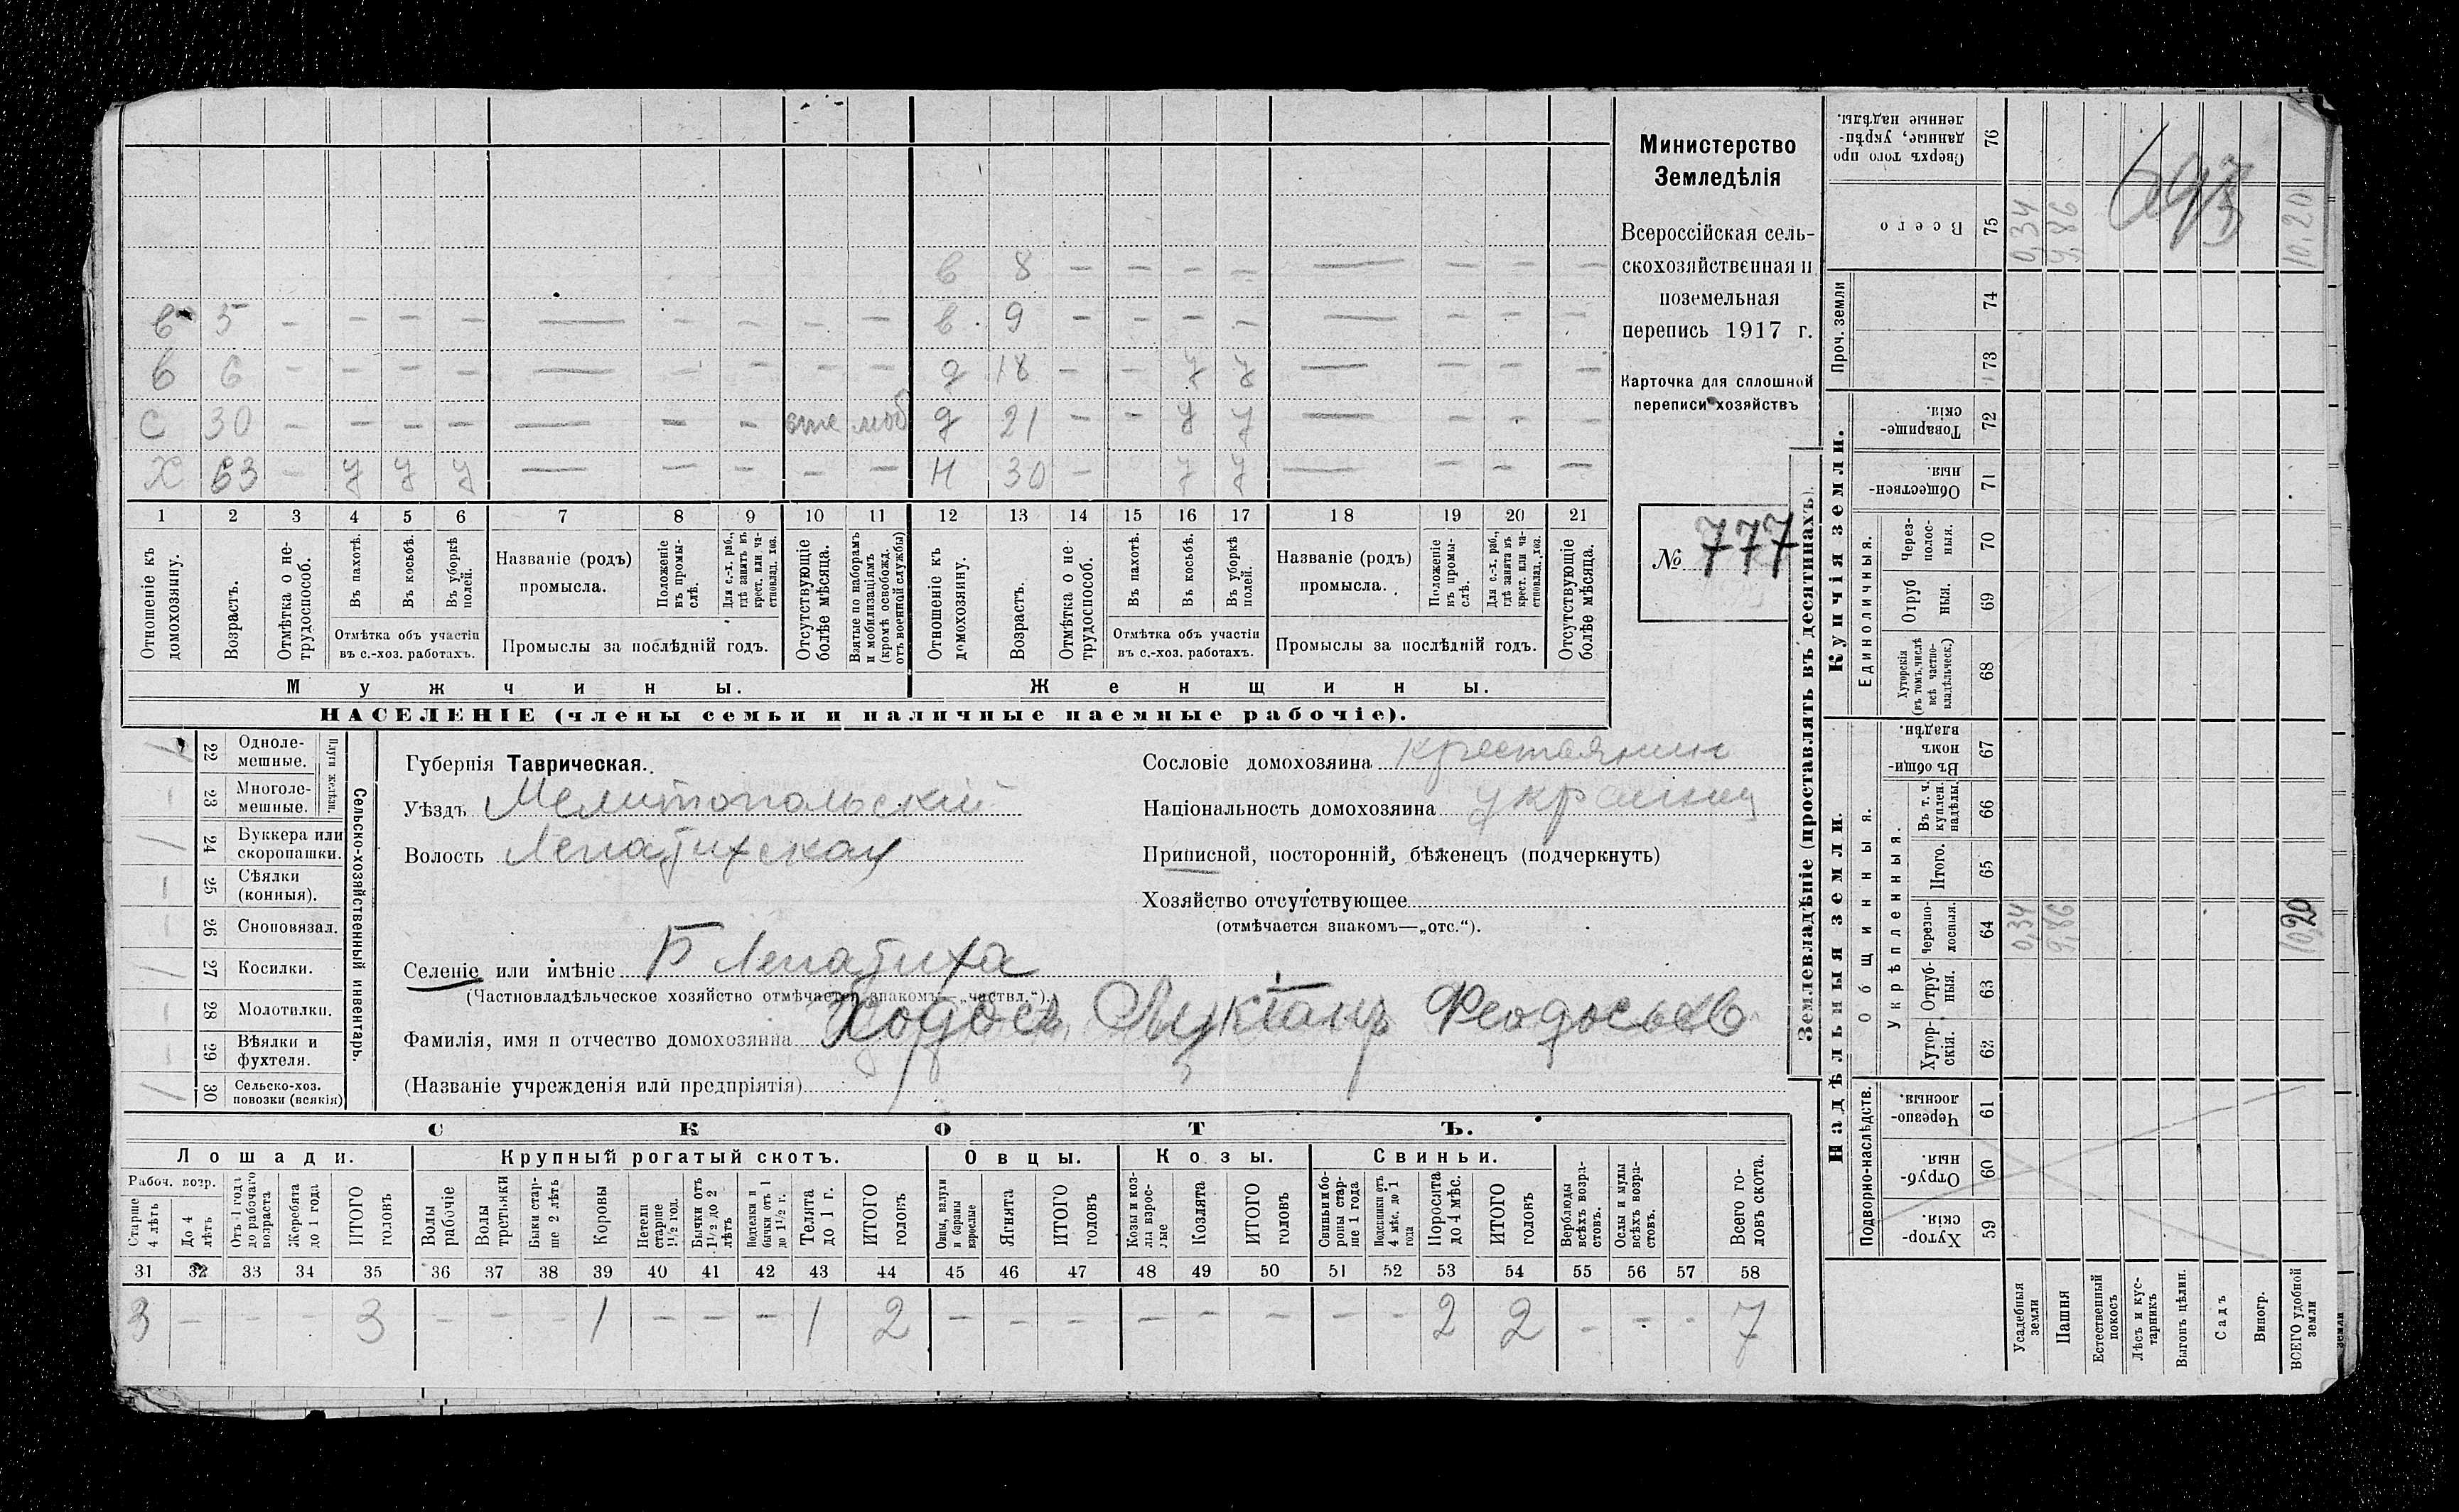 в 8 — — — — — — — —
в 5 — — — — — — — — — в 9 — — — — — — — —
в 6 — — — — — — — — — д 18 — — у у — — — —
С 30 — — — — — — — отс моб д 21 — — у у — — — —
Х 63 — у у у — — — — — Н 30 — у у — — — —
1 2 3 4 5 6 7 8 9 10 11 12 13 14 15 16 17 18 19 20 21
Отношеніе къ домохозяину.
Возрастъ.
Отмѣтка о не-
трудоспособ.
Въ пахотѣ.
Въ косьбѣ.
Въ уборкѣ
полей.
Отмѣтка объ участіи
въ с.-хоз. работахъ.
Названіе (родъ)
промысла.
Положеніе
въ промы-
слѣ.
Для с.-х. раб.,
гдѣ занятъ въ
крест. или ча-
стновлад. хоз.
Промыслы за послѣдній годъ.
Отсутствующіе
болѣе мѣсяца.
Взятые по наборамъ
и мобилизаціямъ
(кромѣ освобожд.
отъ военной службы)
Отношеніе къ
домохозяину.
Возрастъ.
Отмѣтка о не-
трудоспособ.
Въ пахотѣ.
Въ косьбѣ.
Въ уборкѣ
полей.
Отмѣтка объ участіи
въ с.-хоз. работахъ.
Названіе (родъ)
промысла.
Положеніе
въ промы-
слѣ.
Для с.-х. раб.,
гдѣ занятъ въ
крест. или ча-
стновлад. хоз.
Промыслы за послѣдній годъ.
Отсутствующіе
болѣе мѣсяца.
Мужчины.
Женщины.
НАСЕЛЕНІЕ (члены семьи и наличные наемные рабочіе).
Министерство
Земледѣлія
Всероссійская сель-
скохозяйственная и
поземельная
перепись 1917 г.
Карточка для сплошной
переписи хозяйствъ
№ 777
22 Одноле-
мешные.
23 Многоле-
мешные.
Плуги желѣзн.
24 Буккера или
скоропашки.
25 Сѣялки
(конныя).
26 Сноповязал.
27 Косилки.
28 Молотилки.
29 Вѣялки и
фухтеля.
30 Сельско-хоз.
повозки (всякія)
Сельско-хозяйственный инвентарь.
Губернія Таврическая.
Уѣздъ Мелитопольскій
Волость Лепатихская
Селеніе или имѣніе Б Лепатиха
(Частновладѣльческое хозяйство отмѣчается знакомъ—„частвл.“).
Фамилія, имя и отчество домохозяина Ходосъ Лукіанъ Феодосьев
(Названіе учрежденія или предпріятія)
Сословіе домохозяина крестьянин
Національность домохозяина украинец
Приписной, посторонній, бѣженецъ (подчеркнуть)
Хозяйство отсутствующее
(отмѣчается знакомъ—„отс.“).
СКОТЪ.
Лошади. Крупный рогатый скотъ. Овцы. Козы. Свиньи.
Рабоч. возр.
Старше
4 лѣтъ
До 4
лѣтъ
Отъ 1 года
до рабочаго
возраста
Жеребята
до 1 года
ИТОГО
головъ
Волы
рабочіе
Волы
третьяки
Быки стар-
ше 2 лѣтъ
Коровы
Нетели
старше
1½ год.
Бычки отъ
1½ до 2
лѣтъ
Подтелки и
бычки отъ 1
до 1½ г.
Телята
до 1 г.
ИТОГО
головъ
Овцы, валухи
и бараны
взрослые
Ягнята
ИТОГО
головъ
Козы и коз-
лы взрос-
лые
Козлята
ИТОГО
головъ
Свиньи и бо-
ровы стар-
ше 1 года
Подсвинки отъ
4 мѣс. до 1
года
Поросята
до 4 мѣс.
ИТОГО
головъ
Верблюды
всѣхъ возра-
стовъ.
Ослы и мулы
всѣхъ возра-
стовъ.
Всего го-
ловъ скота.
31 32 33 34 35 36 37 38 39 40 41 42 43 44 45 46 47 48 49 50 51 52 53 54 55 56 57 58
3 — — — 3 — — — 1 — — — 1 2 — — — — — — — — 2 2 — — — 7
Землевладѣніе (проставлять въ десятинахъ).
Надѣльныя земли.
Купчія земли.
Проч. земли
Подворно-наслѣдств.
Общинныя.
Укрѣпленныя.
Единоличныя.
Сверхъ того про
данные, укрѣп-
ленные надѣлы. 76
Всего 75 0,34 9,86 10,20
693
74
73
Товарище-
скія. 72
Обществен-
ныя. 71
Через-
полос-
ныя. 70
Отруб
ныя. 69
Хуторскія
(въ томъ числѣ
всѣ частно-
владѣльческ.) 68
Въ общи-
номъ
владѣн. 67
Въ т. ч.
куплен.
надѣлы. 66
Итого. 65
Черезпо-
лосныя. 64 0,34 9,86 10,20
Отруб-
ныя. 63
Хутор-
скія. 62
Черезпо-
лосныя. 61
Отруб-
ныя. 60
Хутор-
скія. 59
Усадебныя
земли
Пашня
Естественный
покосъ
Лѣсъ и кус-
тарникъ
Выгонъ цѣлин.
Садъ
Виногр.
ВСЕГО удобной
земли